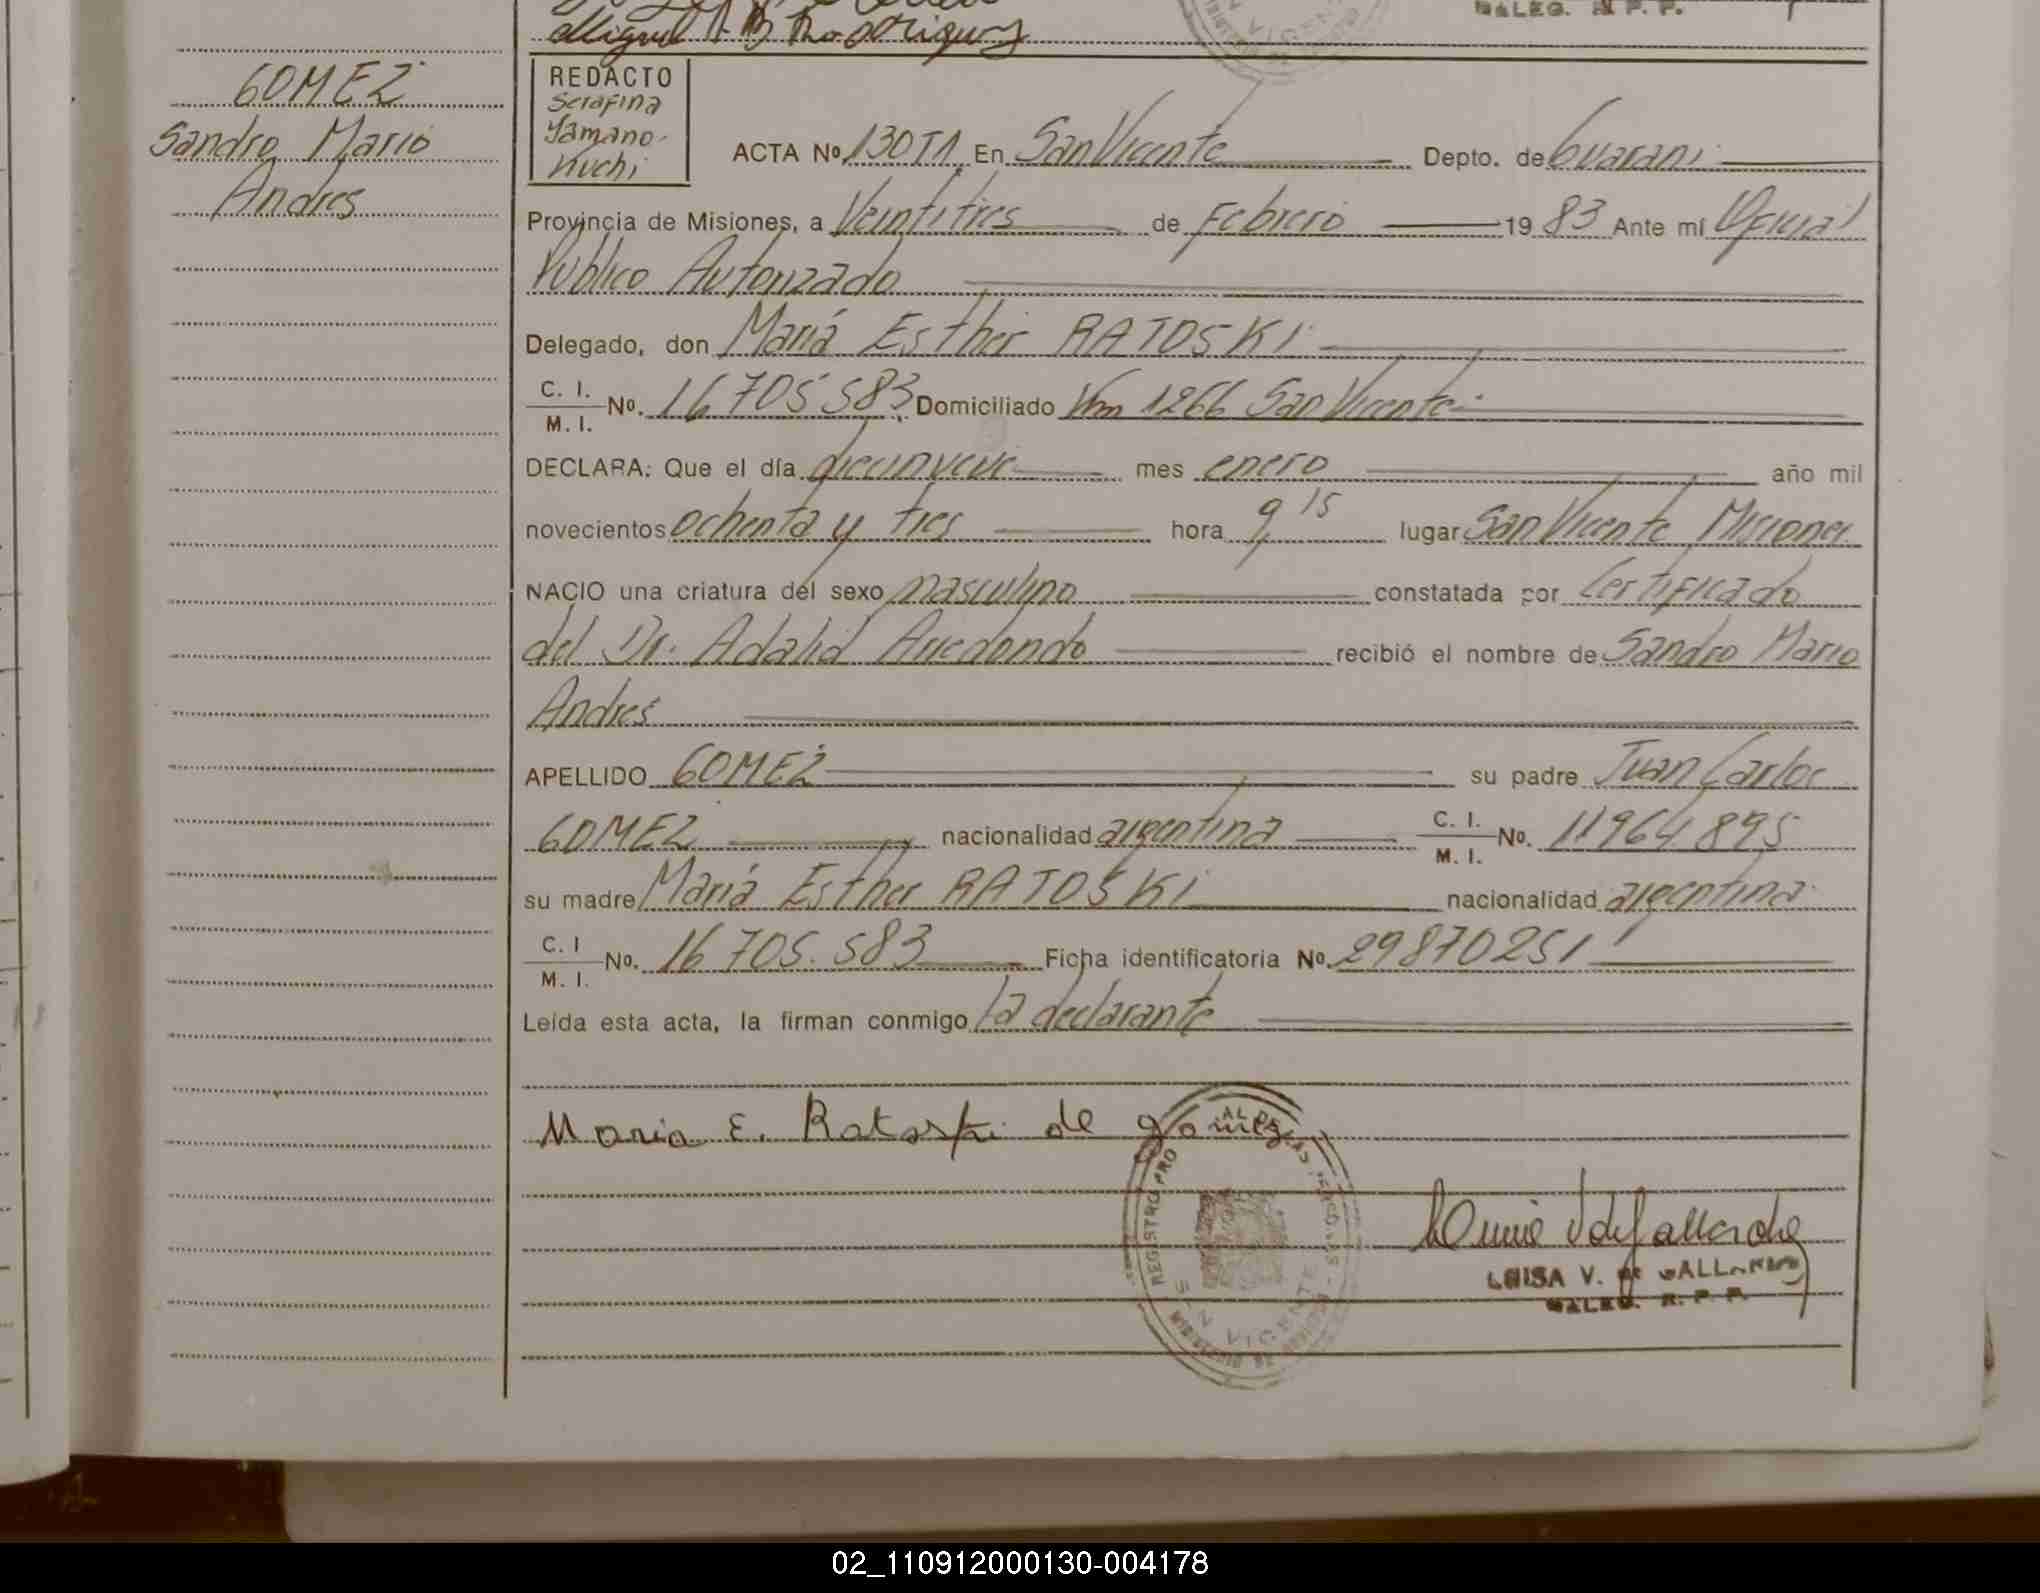 Miguel A B Rodriguez
GALEG. R. P. P.
GOMEZ
Sandro Mario
Andres
REDACTO
Serafina
Yamano-
Kuchi
ACTA Nº 130 T1 En San Vicente Depto. de Guarani
Provincia de Misiones, a Veintitres de Febrero 1983 Ante mí Oficial
Público Autorizado
Delegado, don María Esther RATOSKI
C. I.
M. I. Nº. 16 705 583 Domiciliado Km 1266 San Vicente
DECLARA: Que el día diecinueve mes enero año mil
novecientos ochenta y tres hora 9,15 lugar San Vicente Misiones
NACIO una criatura del sexo masculino constatada por Certificado
del Dr. Adalid Arredondo recibió el nombre de Sandro Mario
Andres
APELLIDO GOMEZ su padre Juan Carlos
GOMEZ nacionalidad argentina C. I. M. I. Nº. 11964 895
su madre María Esther RATOSKI nacionalidad argentina
C. I M. I. Nº. 16 705.583 Ficha identificatoria Nº. 29870251
Leída esta acta, la firman conmigo la declarante
Maria E. Ratoski de gomez
REGISTRO PRO AL DE LAS PERSONAS
SAN VICENTE
LUISA V. de GALLARDO
GALEG. R. P. P.
02_110912000130-004178